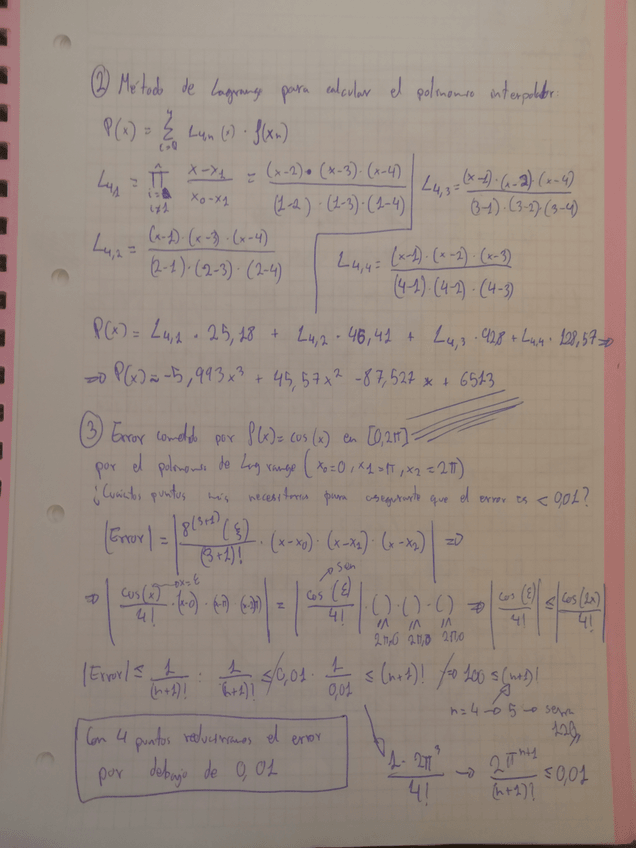 ② Método de Lagrange para calcular el polinomio interpolador:
P(x) = Σ L₄,ₙ(x) · f(xₙ)
L₄,₁ = ∏ (x-x₁)/(x₀-x₁) = ((x-2)·(x-3)·(x-4))/((1-2)·(1-3)·(1-4))
L₄,₃ = ((x-1)·(x-2)·(x-4))/((3-1)·(3-2)·(3-4))
L₄,₂ = ((x-1)·(x-3)·(x-4))/((2-1)·(2-3)·(2-4))
L₄,₄ = ((x-1)·(x-2)·(x-3))/((4-1)·(4-2)·(4-3))
P(x) = L₄,₁ · 25,18 + L₄,₂ · 46,41 + L₄,₃ · + L₄,₄ · 128,57 ⇒
⇒ P(x) = -5,993x³ + 45,57x² - 87,527 x +
③ Error cometido por f(x) = cos(x) en [0,2π]
por el polinomio de Lagrange (x₀=0, x₁=π, x₂=2π)
¿Cuántos puntos más necesitaras para asegurarte que el error es < 0,01?
|Error| = | f⁽³⁺¹⁾(ξ)/(3+1)! · (x-x₀)·(x-x₁)·(x-x₂) | ⇒
⇒ | cos(x)/4! · | = | cos(ξ)/4! | · ( )·( )·( ) ⇒ | cos(ξ)/4! | ≤ | cos(2π)/4! |
→ x=ξ
→ sen
2π,0 2π,0 2π,0
|Error| ≤ 1/(n+1)! · 1/(n+1)! ≤ 0,01 · 1/0,01 ≤ (n+1)! ⇒ 100 ≤ (n+1)!
n=4 → 5 → seria
120
Con 4 puntos reduciriamos el error
por debajo de 0,01
1·2π³/4! → 2π^(n+1)/(n+1)! ≤ 0,01